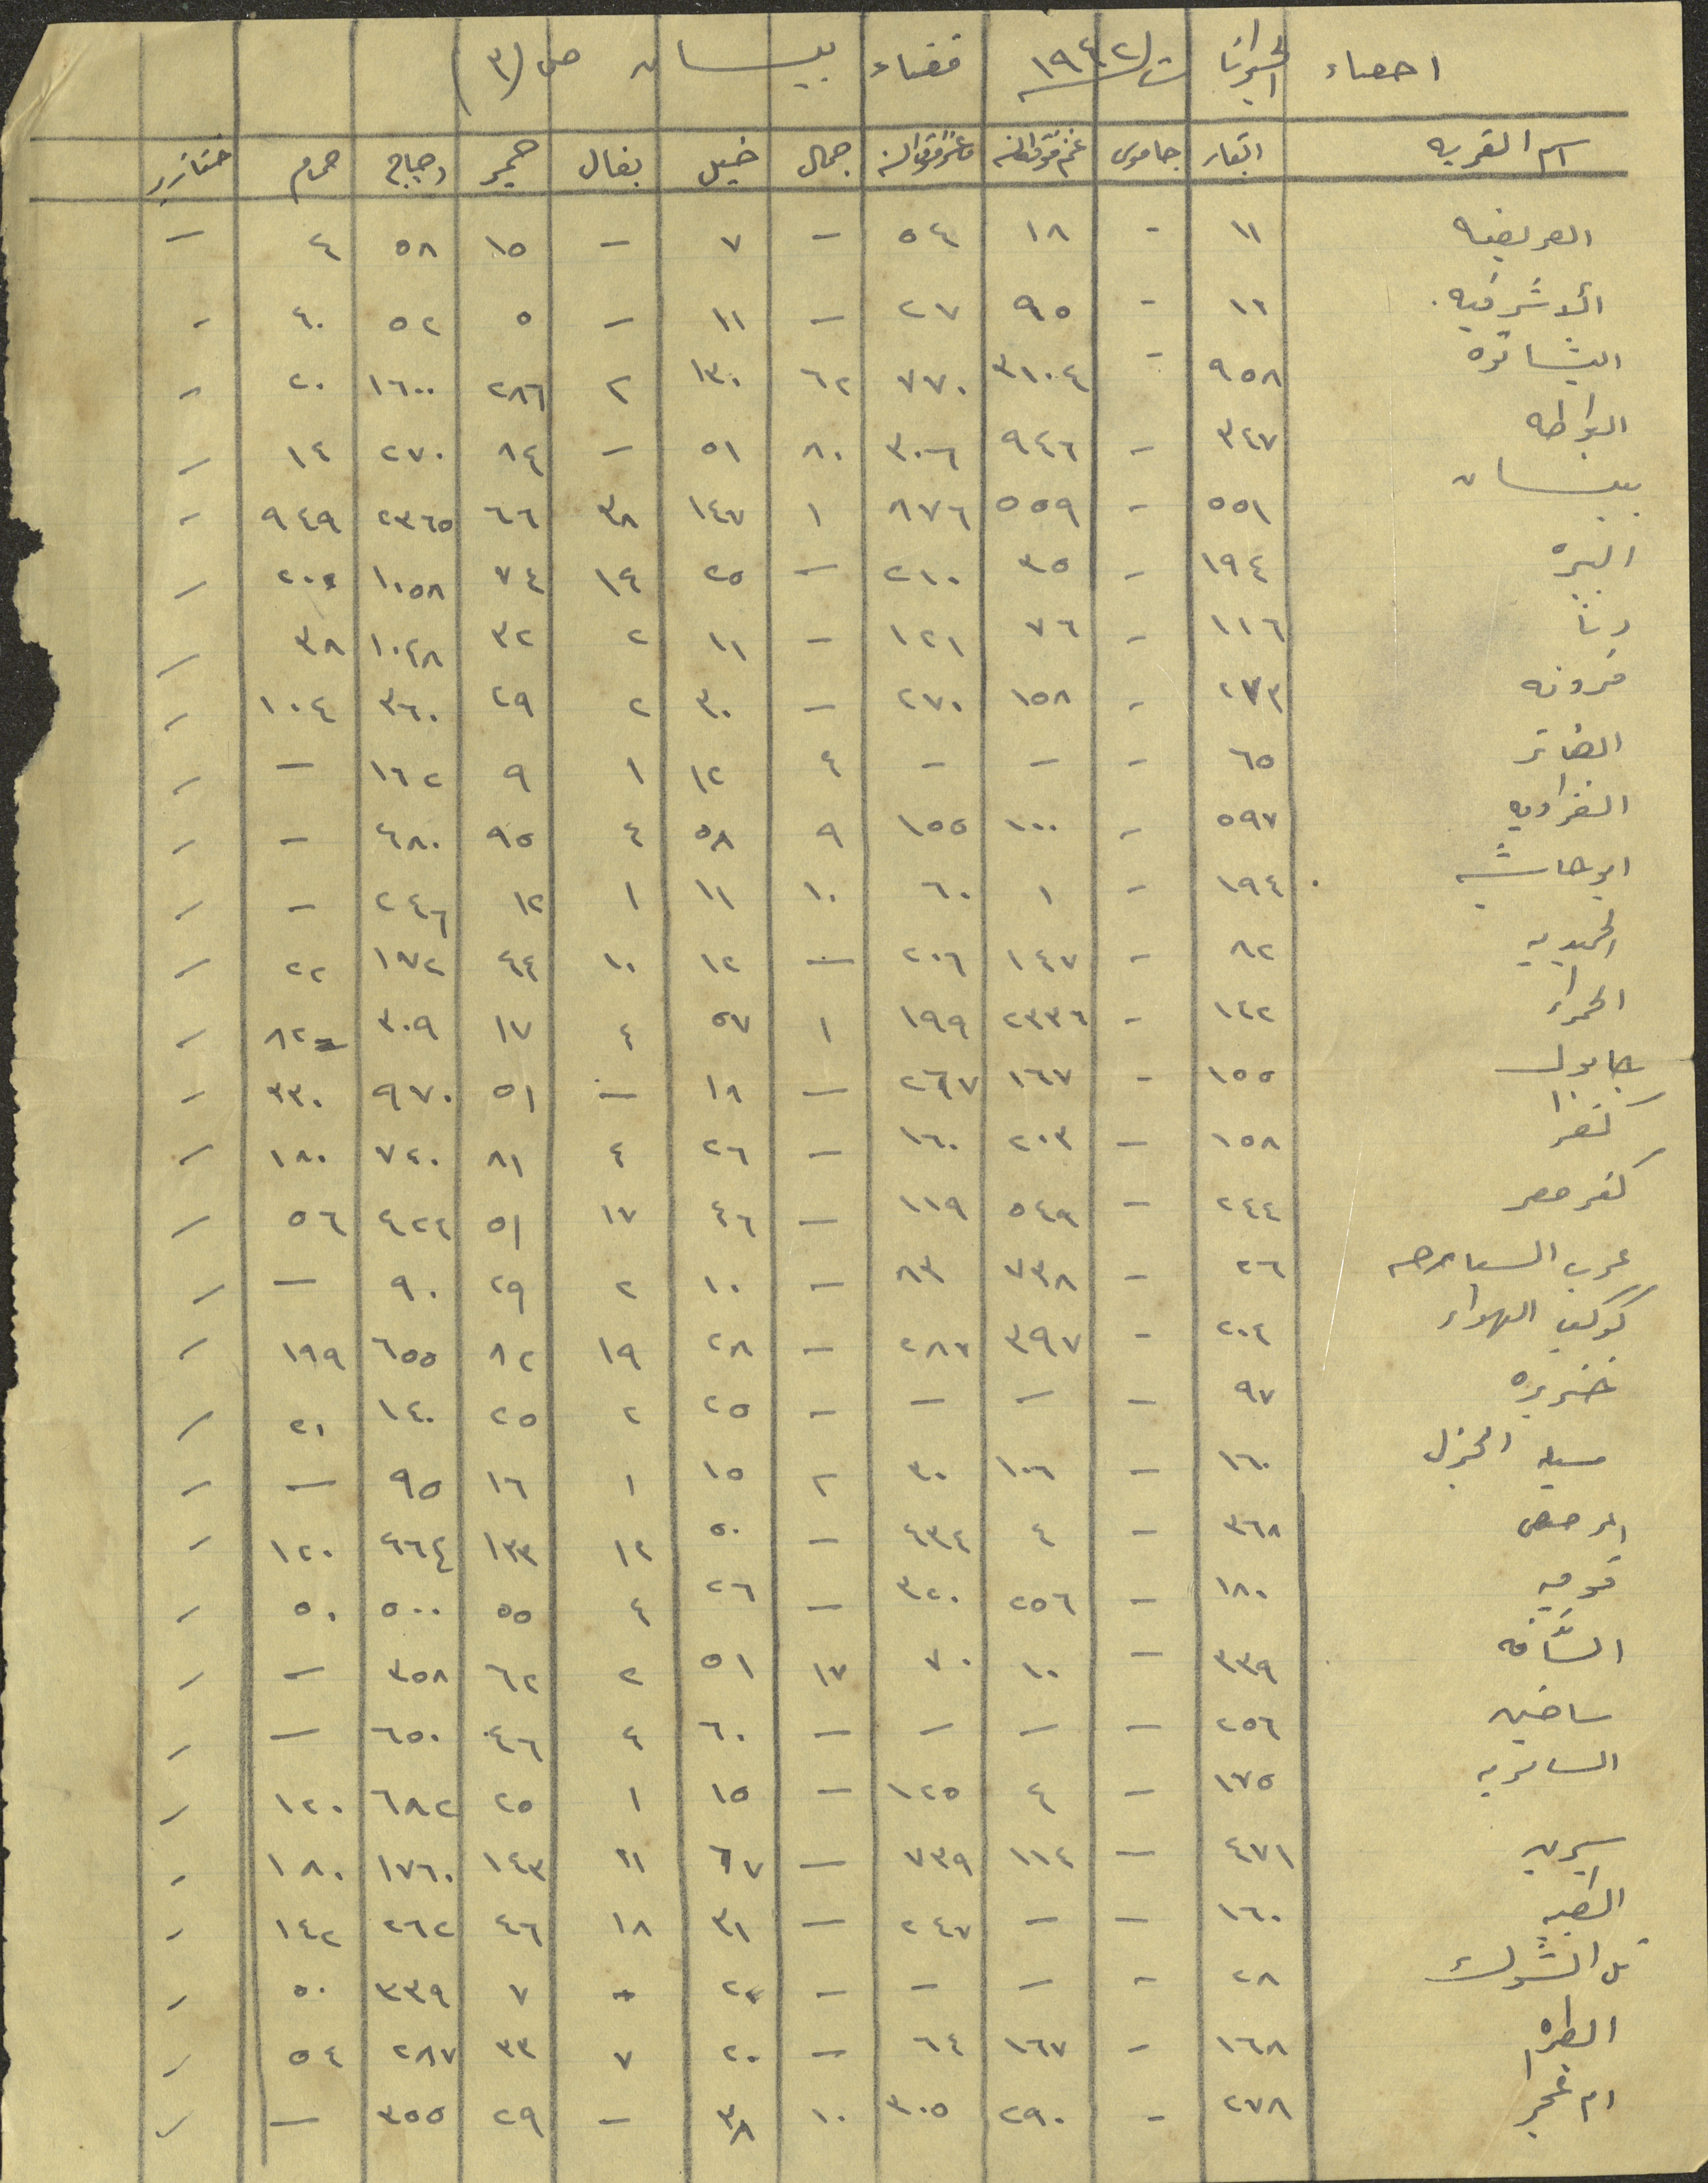 احصاء الحيوانات ١٩٤٢ قضاء بيسان ص (٣)
اسم القريه ابقار جاموس غنم فوق السنه ماعز فوق السنه جمال خيل بغال حمير دجاج حمام خنازير
العريضه ١١ - ١٨ ٥٤ - ٧ - ١٥ ٥٨ ٤ -
الاشرفيه ١١ - ٩٥ ٢٧ - ١١ - ٥ ٥٢ ٤٠ -
البشاتوه ٩٥٨ - ٣١٠٤ ٧٧٠ ٦٢ ١٣٠ ٢ ٢٨٦ ١٦٠٠ ٢٠ -
البواطه ٣٤٧ - ٩٤٦ ٣٠٦ ٨٠ ٥١ - ٨٤ ٢٧٠ ١٤ -
بيسان ٥٥١ - ٥٥٩ ٨٧٦ ١ ١٤٧ ٣٨ ٦٦ ٢٣٦٥ ٩٤٩ -
البيره ١٩٤ - ٣٥ ٢١٠ - ٢٥ ١٤ ٧٤ ١٠٥٨ -
دنا ١١٦ - ٧٦ ١٢١ - ١١ ٢ ٣٢ ١٠٤٨ ٣٨ -
فرونه ٢٧٣ - ١٥٨ ٢٧٠ - ٣٠ ٢ ٢٩ ٣٦٠ ١٠٤ -
الفاتر ٦٥ - - - ٤ ١٢ ١ ٩ ١٦٢ - -
الغزاويه ٥٩٧ - ١٠٠ ١٥٥ ٩ ٥٨ ٤ ٩٥ ٤٨٠ - -
ابو هاشيه ١٩٤ - ١ ٦٠ ١٠ ١١ ١ ١٢ ٢٤٦ - -
الحميديه ٨٢ - ١٤٧ ٢٠٦ - ١٢ ١٠ ٤٤ ١٧٢ ٢٢ -
الحمراء ١٤٢ - ٢٣٣٦ ١٩٩ ١ ٥٧ ٤ ١٧ ٣٠٩ ٨٢ -
جابول ١٥٥ - ١٦٧ ٢٦٧ - ١٨ - ٥١ ٩٧٠ ٣٣٠ -
كفرا ١٥٨ - ٢٠٣ ١٦٠ - ٢٦ ٤ ٨١ ٧٤٠ ١٨٠ -
كفر مصر ٢٤٤ - ٥٤٩ ١١٩ - ٤٦ ١٧ ٥١ ٤٢٤ ٥٦ -
عرب السبارجه ٢٦ - ٧٣٨ ٨٣ - ١٠ ٢ ٢٩ ٩٠ - -
كوكب الهواء ٢٠٤ - ٣٩٧ ٢٨٧ - ٢٨ ١٩ ٨٢ ٦٥٥ ١٩٩ -
خنيزره ٩٧ - - - - ٢٥ ٢ ٢٥ ١٤٠ ٢١ -
مسيل الجزل ١٦٠ - ١٠٦ ٣٠ ٢ ١٥ ١ ١٦ ٩٥ - -
المرصص ٣٦٨ - ٤ ٤٣٤ - ٥٠ ١٢ ١٣٣ ٤٦٤ ١٢٠ -
قوميه ١٨٠ - ٢٥٦ ٣٢٠ - ٢٦ ٤ ٥٥ ٥٠٠ ٥٠ -
السافه ٣٣٩ - ١٠ ٧٠ ١٧ ٥١ ٢ ٦٢ ٣٥٨ - -
ساخين ٢٥٦ - - - - ٦٠ ٤ ٤٦ ٦٥٠ - -
السامريه ١٧٥ - ٤ ١٢٥ - ١٥ ١ ٢٥ ٦٨٢ ١٢٠ -
سيرين ٤٧١ - ١١٤ ٧٣٩ - ٦٧ ١٤٣ ١٧٦٠ ١٨٠ -
الطيبه ١٦٠ - - ٢٤٧ - ٣١ ١٨ ٤٦ ٢٦٢ ١٤٢ -
تل الشوك ٢٨ - - - - ٧ ٣٣٩ ٥٠ -
الطيره ١٦٨ - ١٦٧ ٦٤ - ٢٠ ٧ ٣٣ ٢٨٧ ٥٤ -
ام عجرا ٢٧٨ - ٢٩٠ ٣٠٥ ١٠ ٣٨ - ٢٩ ٣٥٥ - -